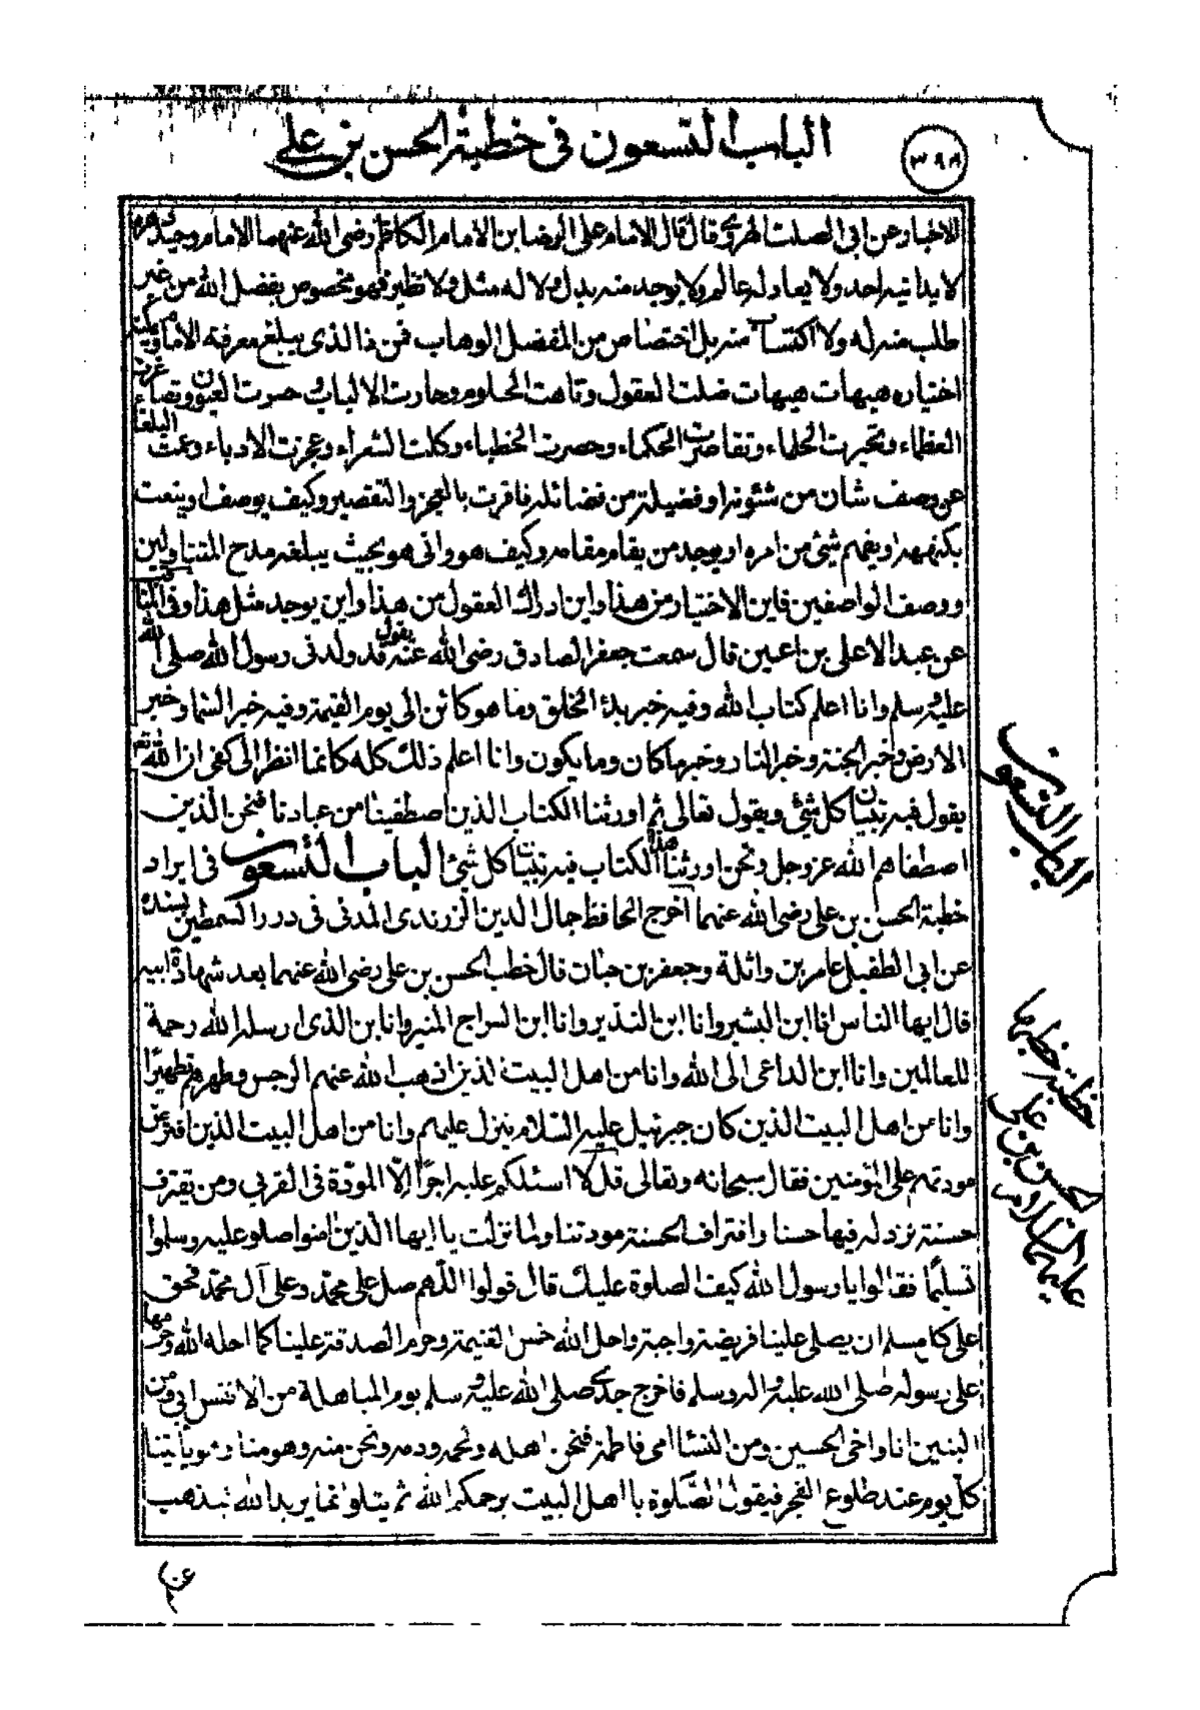 الباب التسعون فى خطبة الحسن بن على
٣٩٨
الاخبار عن ابى الصلت الهروى قال قال الامام على الرضا بن الامام الكاظم رضى الله عنهما الامام وحيد دهره
لا يدانيه احد ولا يعادله عالم ولا يوجد منه بدل ولا له مثل ولا نظير فهو مخصوص بفضل الله من غير
طلب منه له ولا اكتساب منه بل اختصاص من المفضل الوهاب فمن ذا الذى يبلغ معرفة الامام ويمكنه
اختياره هيهات هيهات ضلت العقول وتاهت الحلوم وحارت الالباب وحسرت العيون وتصاغرت
العظماء وتحيرت الحلماء وتقاصرت الحكماء وحصرت الخطباء وكلت الشعراء وعجزت الادباء وعيت البلغا
عن وصف شان من شئونه او فضيلة من فضائله فاقرت بالعجز والتقصير وكيف يوصف او ينعت
بكنهه او يفهم شئ من امره او يوجد من يقام مقامه وكيف هو وانى هو بحيث يبلغه مدح المتناولين
ووصف الواصفين فاين الاختيار من هذا واين ادراك العقول من هذا واين يوجد مثل هذا وفى المناقب
عن عبد الاعلى بن اعين قال سمعت جعفر الصادق رضى الله عنه يقول قد ولدنى رسول الله صلى الله
عليه وسلم وانا اعلم كتاب الله وفيه خبر بدء الخلق وما هو كائن الى يوم القيمة وفيه خبر السماء وخبر
الارض وخبر الجنة وخبر النار وخبر ما كان وما يكون وانا اعلم ذلك كله كانما انظر الى كفى ان الله تعالى
يقول فيه تبيان كل شئ ويقول تعالى ثم اورثنا الكتاب الذين اصطفينا من عبادنا فنحن الذين
اصطفاهم الله عز وجل ونحن اورثنا هذا الكتاب فيه تبيان كل شئ الباب التسعون فى ايراد
خطبة الحسن بن على رضى الله عنهما اخرج الحافظ جمال الدين الزرندى المدنى فى درر السمطين بسنده
عن ابى الطفيل عامر بن واثلة وجعفر بن حبان قال خطب الحسن بن على رضى الله عنهما بعد شهادة ابيه
قال ايها الناس انا ابن البشير وانا ابن النذير وانا ابن السراج المنير وانا بن الذى ارسله الله رحمة
للعالمين وانا ابن الداعى الى الله وانا من اهل البيت الذين اذهب الله عنهم الرجس وطهرهم تطهيرا
وانا من اهل البيت الذين كان جبرئيل عليه السلام ينزل عليهم وانا من اهل البيت الذين افترض
مودتهم على المؤمنين فقال سبحانه وتعالى قل لا اسئلكم عليه اجرًا إلّا المودّة فى القربى ومن يقترف
حسنة نزد له فيها حسنا واقتراف الحسنة مودتنا ولما نزلت يا ايها الذين امنوا صلوا عليه وسلموا
تسليمًا فقالوا يا رسول الله كيف الصلوة عليك قال قولوا اللهم صل على محمّد وعلى آل محمّد فحق
على كل مسلم ان يصلى علينا فريضة واجبة واحل الله خمس الغنيمة وحرم الصدقة علينا كما احله الله وحرمها
على رسوله صلى الله عليه واله وسلم فاخرج جدى صلى الله عليه وسلم يوم المباهلة من الانفس ابى ومن
البنين انا واخى الحسين ومن النساء امى فاطمة فنحن اهله ولحمه ودمه ونحن منه وهو منا وهو يأتينا
كل يوم عند طلوع الفجر فيقول الصّلوة يا اهل البيت يرحمكم الله ثم يتلو انما يريد الله ليذهب
عن
الباب التسعون
خطبة خطبها
الحسن بن على
عليهما السلام